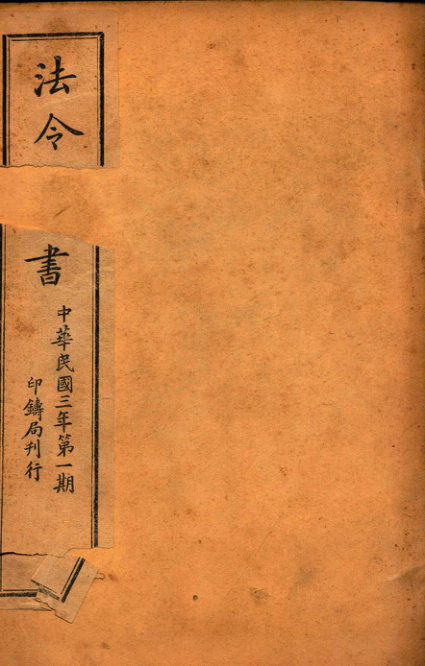 法令
書
中華民國三年第一期
印鑄局刊行